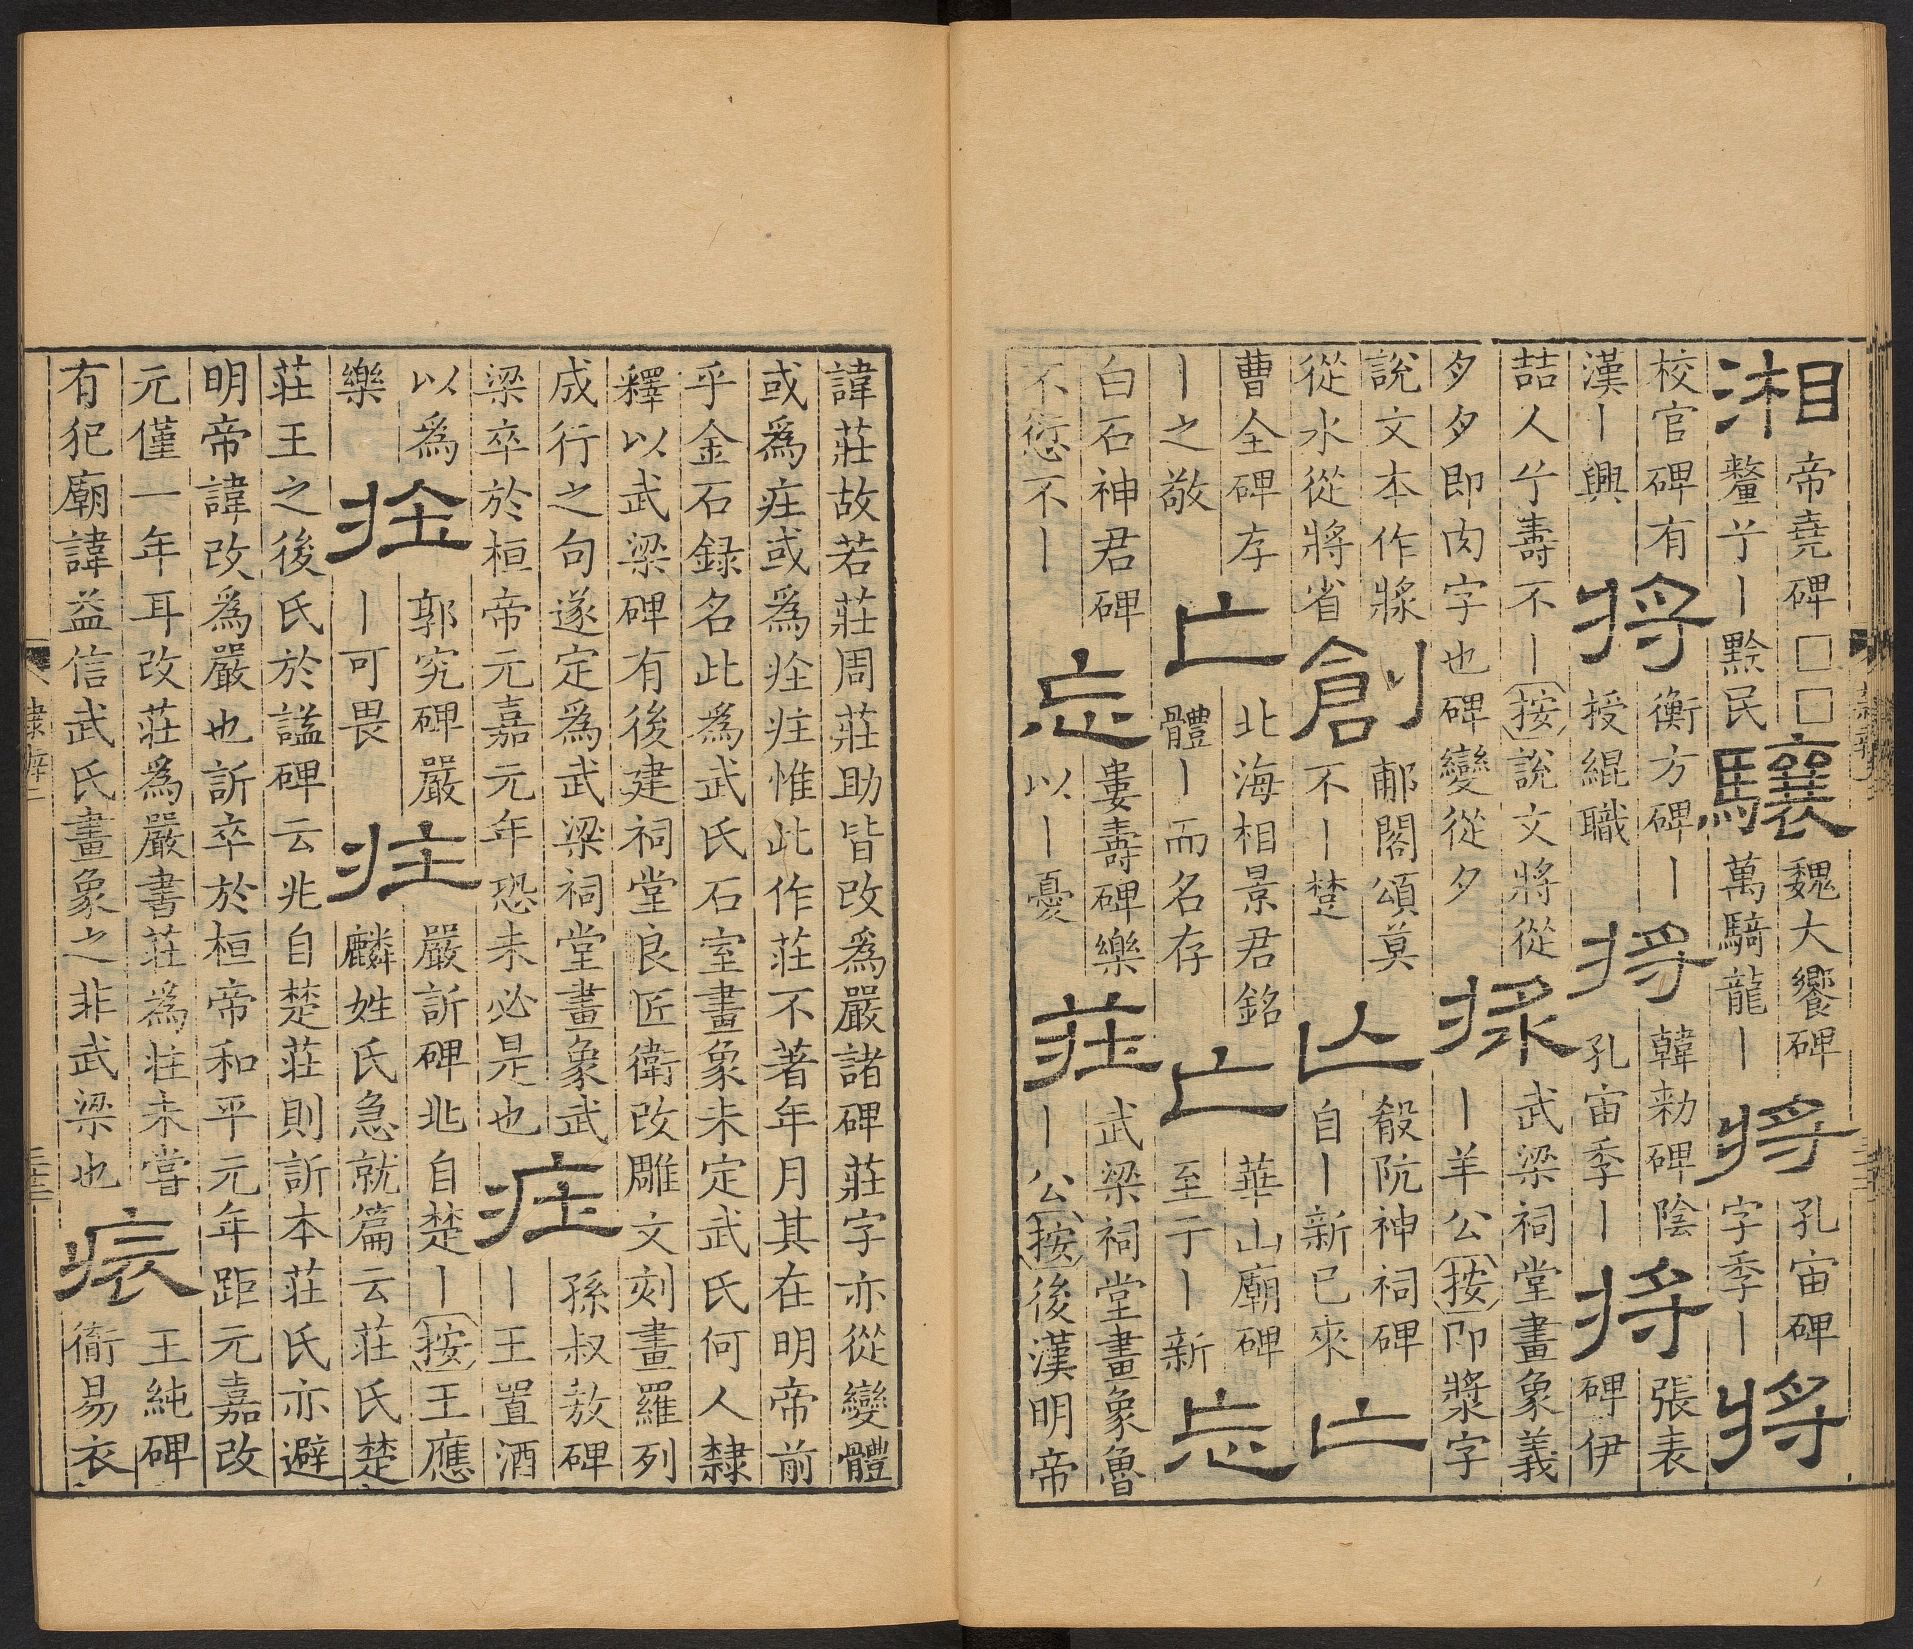 湘
帝堯碑□□
釐兮｜黔民
驤
魏大饗碑
萬騎龍｜
將
孔宙碑
字季｜
將
校官碑有
漢｜興
將
衡方碑｜
授緄職
將
韓勑碑陰
孔宙季｜
將
張表
碑伊
喆人兮壽不｜按說文將從
夕夕即肉字也碑變從夕
㹡
武梁祠堂畫象義
｜羊公按即漿字
說文本作㯍
從水從將省
創
郙閣頌莫
不｜楚
亡
殽阬神祠碑
自｜新已來
亡
曹全碑存
｜之敬
亡
北海相景君銘
體｜而名存
亡
華山廟碑
至于｜新
忘
白石神君碑
不愆不｜
忘
婁壽碑樂
以｜憂
莊
武梁祠堂畫象魯
｜公按後漢明帝
諱莊故若莊周莊助皆改爲嚴諸碑莊字亦從變體
或爲疘或爲痊疰惟此作莊不著年月其在明帝前
乎金石録名此爲武氏石室畫象未定武氏何人隸
釋以武梁碑有後建祠堂良匠衛改雕文刻畫羅列
成行之句遂定爲武梁祠堂畫象武
梁卒於桓帝元嘉元年恐未必是也
疘
孫叔敖碑
｜王置酒
以爲
樂
痊
郭究碑嚴
｜可畏
疰
嚴訢碑兆自楚｜按王應
麟姓氏急就篇云莊氏楚
莊王之後氏於諡碑云兆自楚莊則訢本莊氏亦避
明帝諱改爲嚴也訢卒於桓帝和平元年距元嘉改
元僅一年耳改莊爲嚴書莊爲疰未嘗
有犯廟諱益信武氏畫象之非武梁也
王純碑
衞易衣